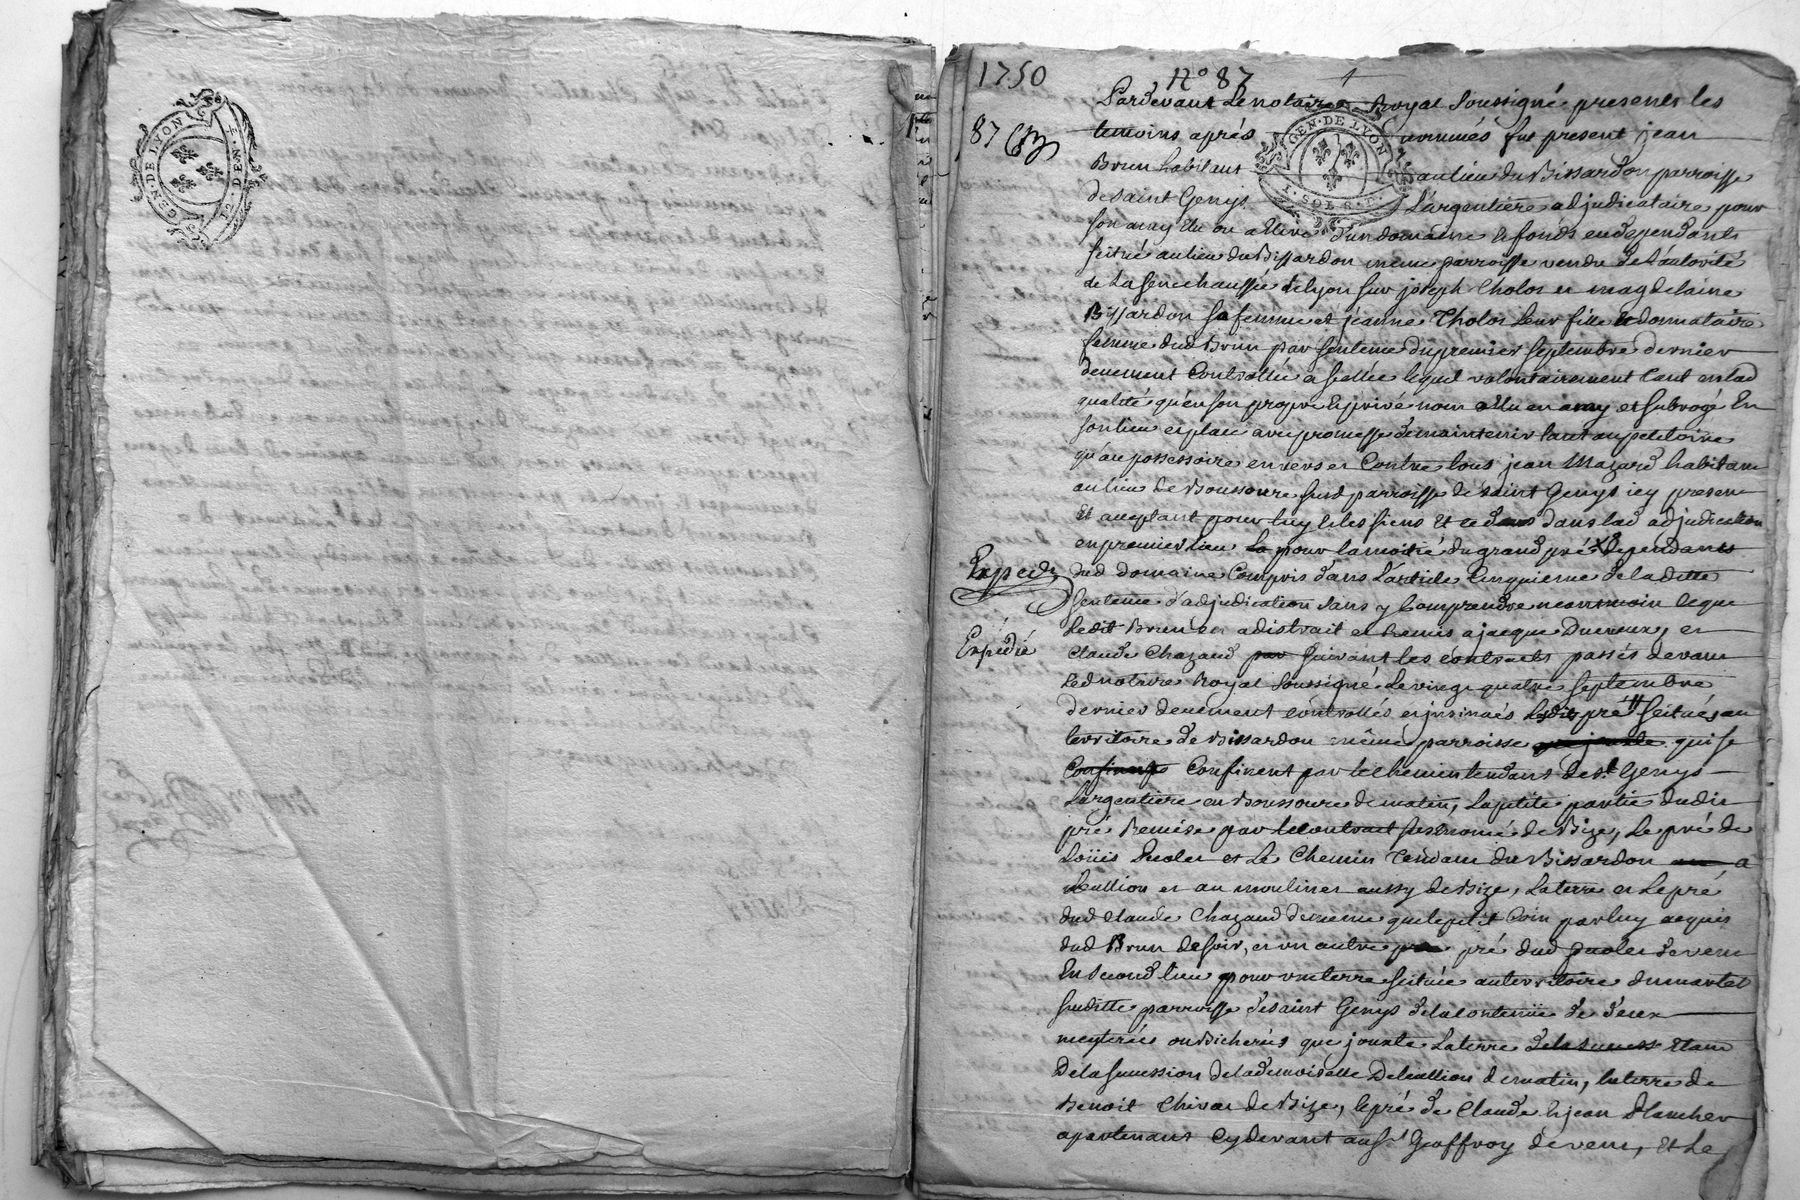 GEN · DE LYON
DEN · T ·
1750
N° 87
87
Pardevant Le notaire Royal Soussigné presents les
temoins aprés nommés fut present jean
GEN · DE LYON
SOLS · T ·
Brun habitant au lieu du Bissardon parroisse
de Saint Genys L'argentiere adjudicataire pour
son amy Elu ou a Elire d'un domaine & fonds en dependants
scitué au lieu du Bissardon meme parroisse vendu de L'autorité
de La Senechaussée de Lyon sur joseph Tholos et magdelaine
Bissardon sa femme et jeanne Tholos Leur fille & donnataire
femme dud Brun par sentence du premier septembre dernier
deuement Controllée & scellée lequel volontairement tant en lad
qualité qu'en son propre & privé nom a Elu en amy et subrogé En
son lieu et place avec promesse de maintenir tant au petitoire
qu'au possessoire envers et Contre tous jean Mazard habitant
au lieu de Boussoure susd parroisse de saint Genys icy present
Et acceptant pour luy & les siens Et dans lad adjudication
en premier lieu pour la moitié du grand pré dependants
Expedié
dud domaine Compris dans L'article Cinquieme de ladite
sentence d'adjudication sans y Comprendre neantmoin ce que
Expédié
Ledit Brun en a distrait et Remis a jacque et
Claude Chazaud suivant les contracts passés devant
Led notaire Royal Soussigné Le vingt quatre septembre
dernier deuement controllés et insinués pré scitués au
territoire de Bissardon même parroisse qui se
Confinent par le chemin tendant de St Genys
L'argentiere en Boussoure de matin, La petite partie dudit
pré Remise par le contrait susénomé de Bize, Le pré de
Loüis et Le Chemin Tendant du Bissardon a
et au moulin et aussy de Bize, La terre et Le pré
dud Claude Chazaud de meme que le petit Coin par luy acquis
dud Brun de soir, et un autre pré dud de vent
En second lieu pour une terre scituée au territoire du martel
susditte parroisse de saint Genys de la contenüe de deux
meyterées ou Bicherées que jouxte La terre
De la succession de la demoiselle de matin, la terre de
Benoit de Bize, le pré de Claude & jean Blancher
apartenant Cy devant au Sr Geoffroy de vent, et Le